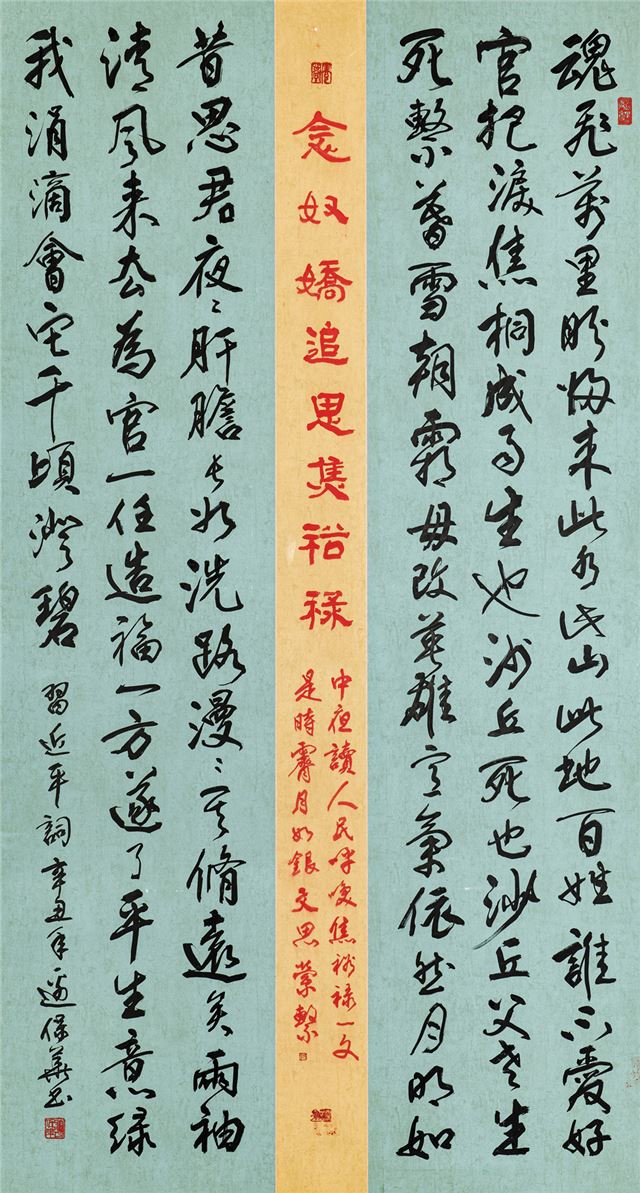 魂飛萬里盼歸來此水此山此地百姓誰不愛好
官把淚焦桐成雨生也沙丘死也沙丘父老生
死繫暮雪朝霜毋改英雄意氣依然月明如
念奴嬌追思焦裕祿
中夜讀人民呼喚焦裕祿一文
是時霽月如銀文思縈繫
昔思君夜〻肝膽長如洗路漫〻其脩遠矣兩袖
清風來去為官一任造福一方遂了平生意綠
我涓滴會它千頃澄碧 習近平詞辛丑年邊保華書